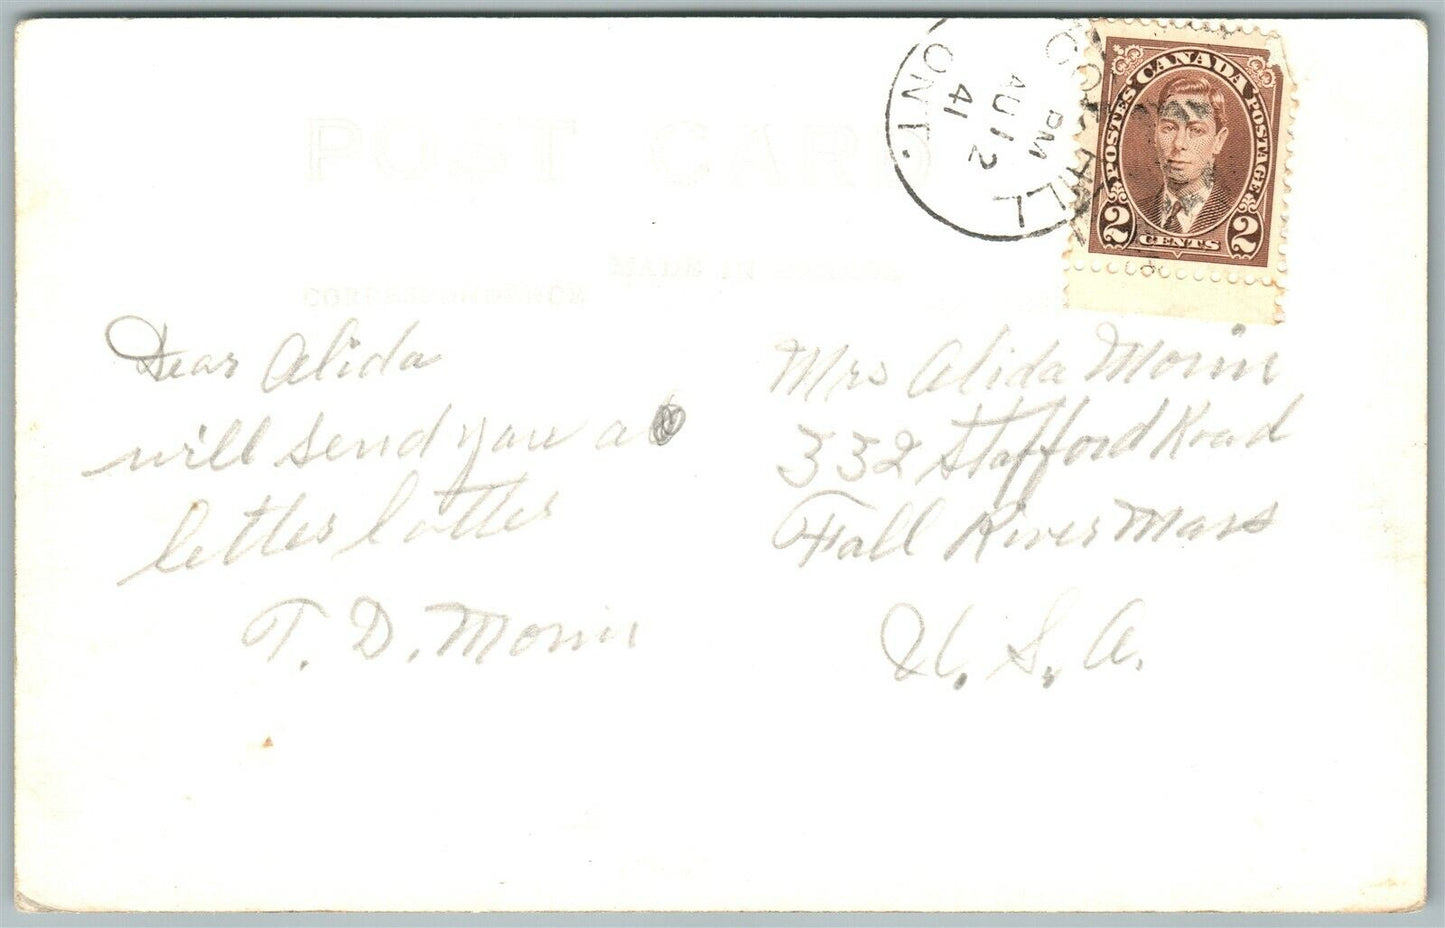 POST CARD
MADE IN
CORRESPONDENCE
ONT.
PM
AU 12
41
HILL
POSTES CANADA POSTAGE
2 CENTS 2
Dear Alida
will send you a
letter latter
T. D. Morin
Mrs Alida Morin
332 Stafford Road
Fall River Mass
U. S. A.